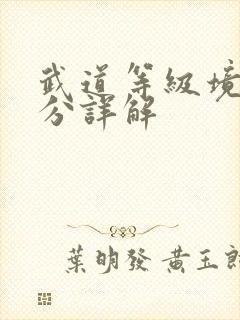 武道等級境
分詳解
葉明發 黃玉郎